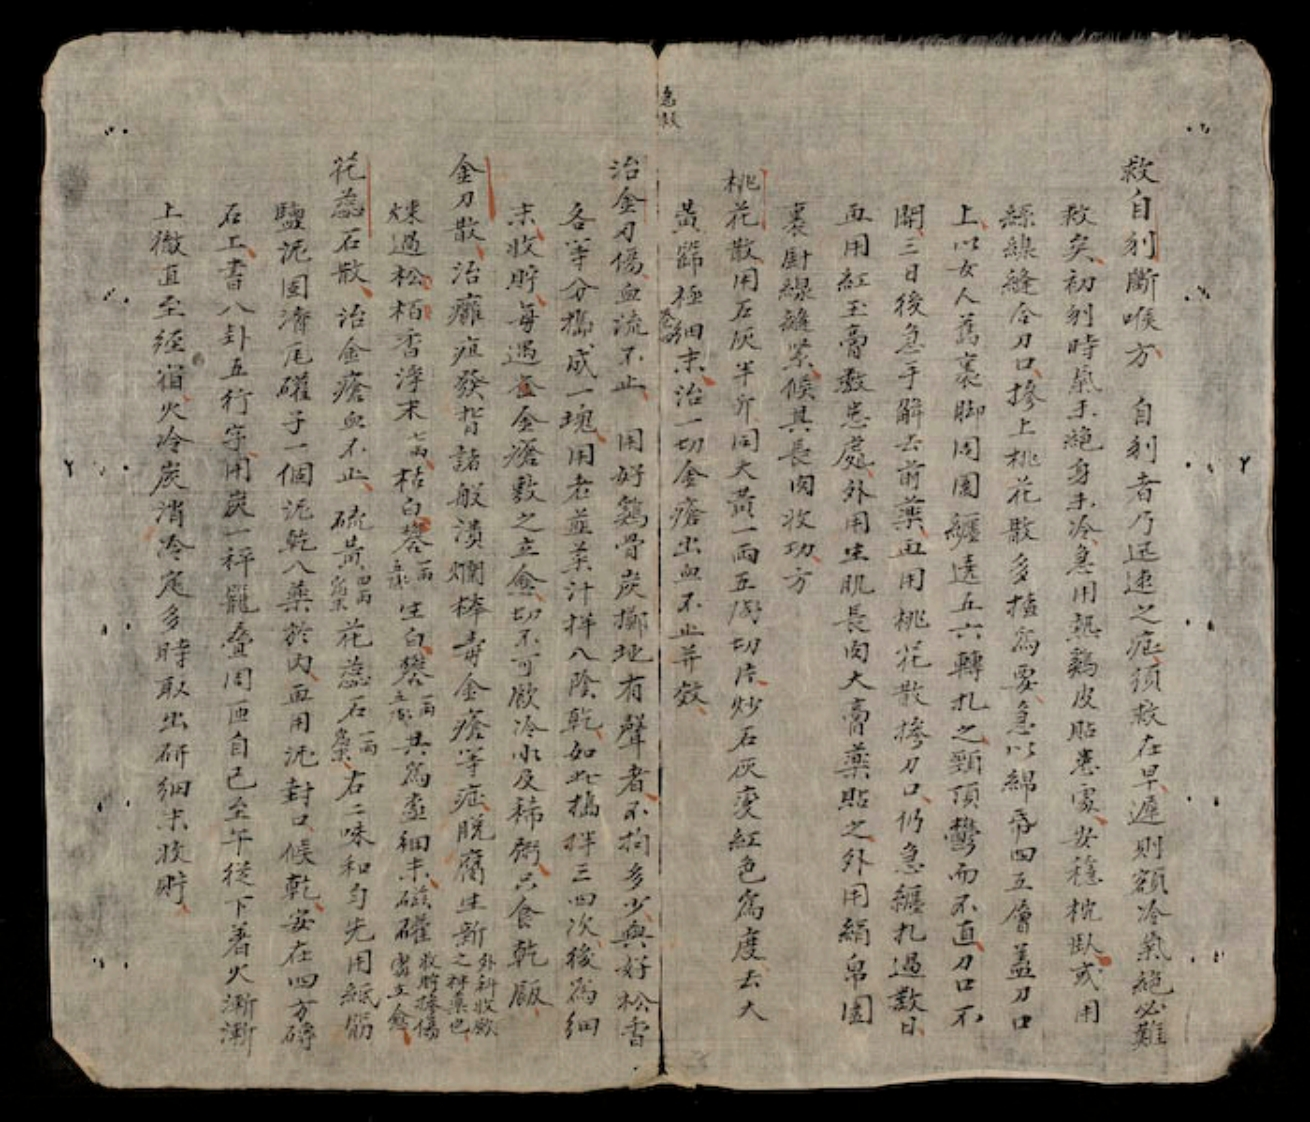 急救
救自刎斷喉方 自刎者乃迅速之症須救在早遲則額冷氣絶必難
救矣初刎時氣未絶身未冷急用熱鷄皮貼患處安穩枕臥或用
絲線縫合刀口摻上桃花散多搽爲要急以綿帋四五層蓋刀口
上以女人舊裹脚周圍纏遶五六轉扎之頸項鬱而不直刀口不
開三日後急手解去前藥再用桃花散摻刀口仍急纏扎過數日
再用紅玉膏敷患處外用生肌長肉大膏藥貼之外用絹帛圍
裹厨線縫紧候其長肉收功方
桃花散用石灰半斤同大黃一兩五錢切片炒石灰變紅色爲度去大
黃篩極細末治一切金瘡出血不止并效
治金刀傷血流不止 用好鷄骨炭擲地有聲者不拘多少與好松香
各等分搗成一塊用老韮菜汁拌入陰乾如此搗拌三四次後爲細
末收貯每遇金瘡敷之立愈切不可飲冷水及稀粥只食乾飯
金刀散治癰疽發背諸般潰爛棒毒金瘡等症脱腐生新外科收斂之神藥也
煉過松栢香淨末七兩枯白礬一兩五錢生白礬一兩五錢共爲極細末磁礶收貯摻傷處立愈
花蕊石散治金瘡血不止硫黃四兩花蕊石一兩右二味和匀先用紙筋
鹽泥固濟瓦礶子一個泥乾入藥於内再用泥封口候乾安在四方磚
石上書八卦五行字用炭一秤籠叠周匝自己至午從下著火漸漸
上徹直至經宿火冷炭消冷定多時取出研細末收貯